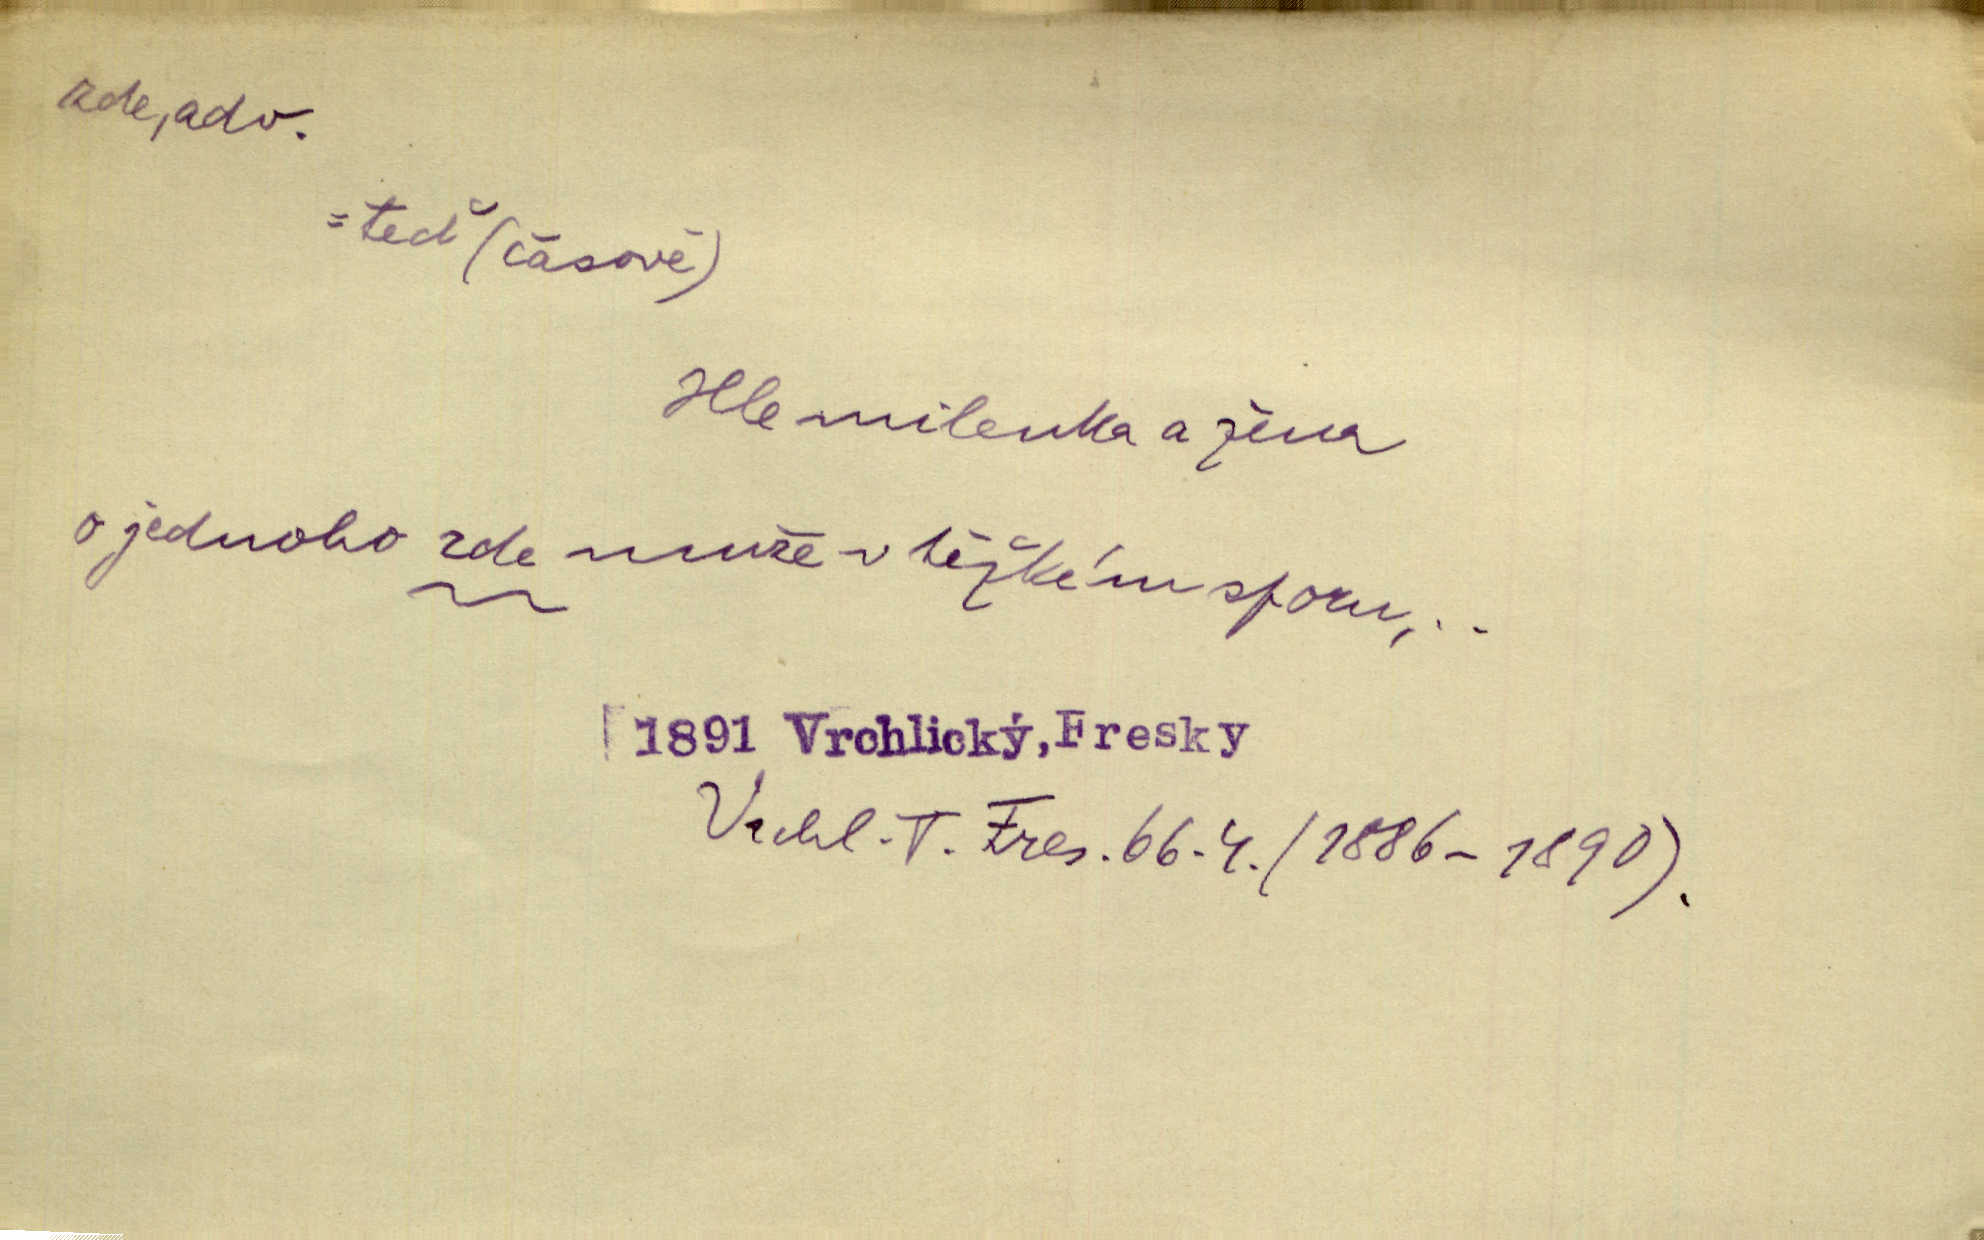 zde, adv.
= teď (časově)
Hle milenka a žena
o jednoho zde muže v těžkém sporu, . .
1891 Vrchlický, Fresky
Vrchl. T. Fres. 66.4. (1886-1890).